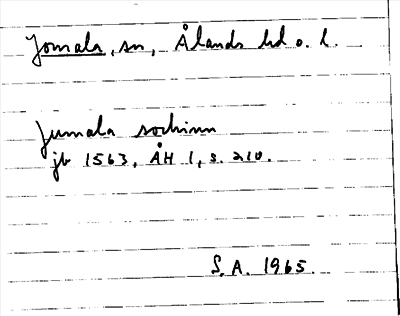 Jomala, sn, Ålands hd o. l.
Jumala sochinn
jb 1563, ÅH 1, s. 210.
S. A. 1965.